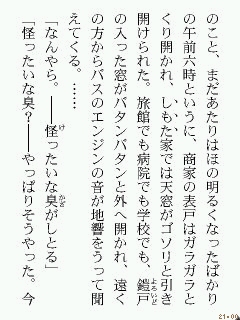 のこと、まだあたりはほの明るくなったばかり
の午前六時というに、商家の表戸はガラガラと
くり開かれ、しもた家では天窓がゴソリと引き
開けられた。旅館でも病院でも学校でも、鎧戸
の入った窓がバタンバタンと外へ開かれ、遠く
の方からバスのエンジンの音が地響をうって聞
えてくる。……
「なんやら。――怪ったいな臭がしとる」
「怪ったいな臭？――やっぱりそうやった。今
よろいど
け
かざ
21:00